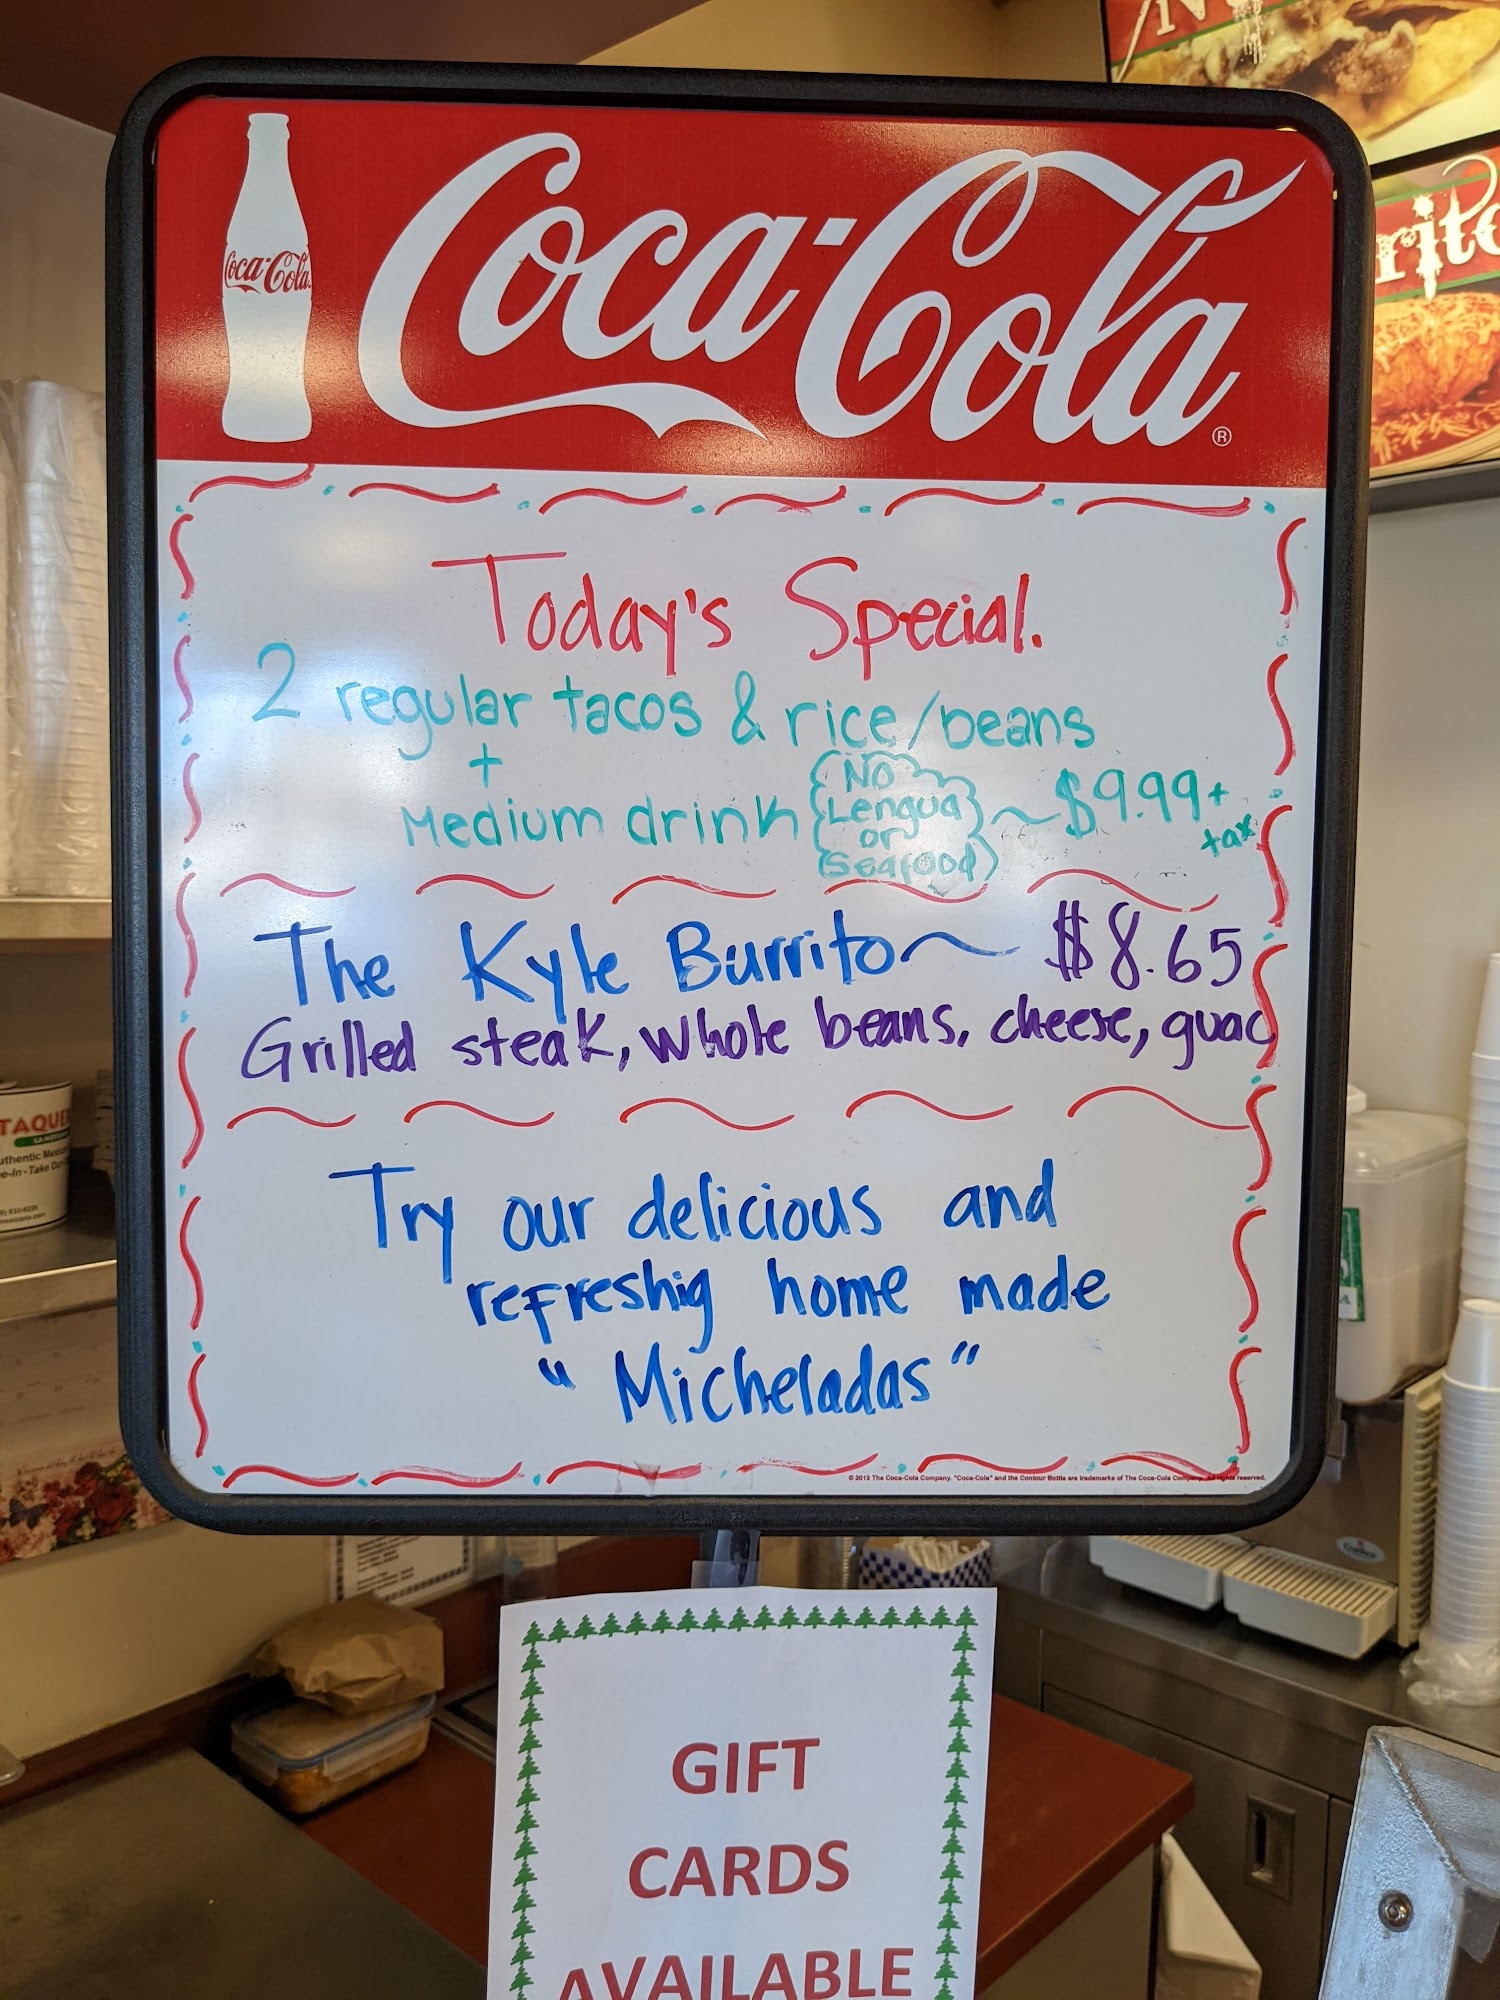 Coca-Cola
Coca-Cola®
Today's Special.
2 regular tacos & rice/beans
+
Medium drink
No
Lengua
or
Seafood
~ $9.99 +
tax
The Kyle Burrito ~ $8.65
Grilled steak, whole beans, cheese, guac
Try our delicious and
refreshig home made
"Micheladas"
© 2013 The Coca-Cola Company. "Coca-Cola" and the Contour Bottle are trademarks of The Coca-Cola Company. All rights reserved.
GIFT
CARDS
AVAILABLE
TAQUE
uthentic Mexic
e-In • Take Out